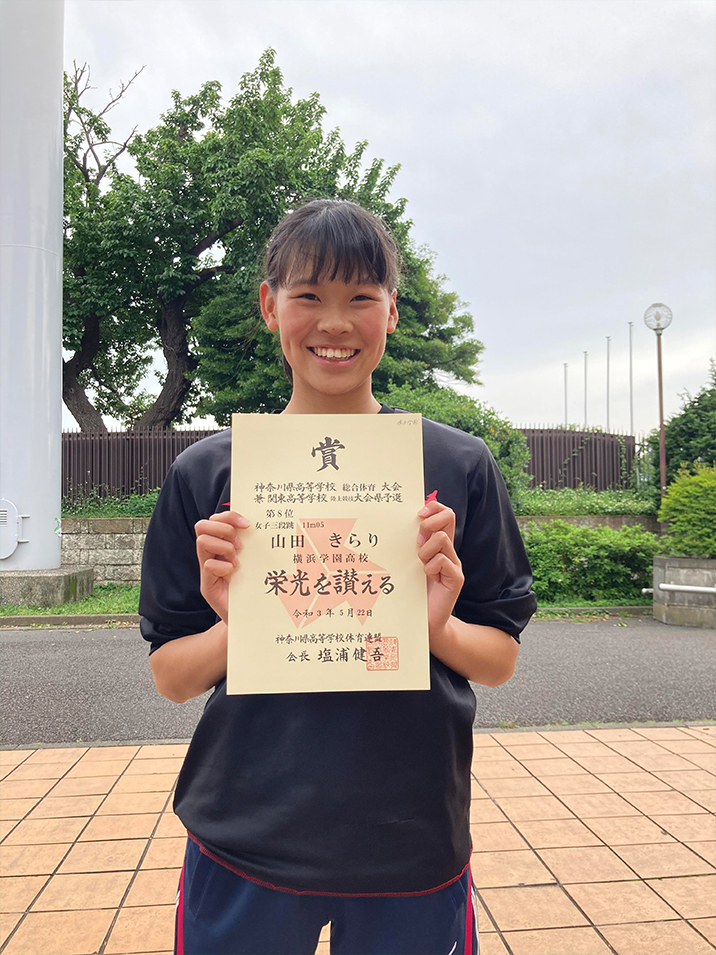 賞
神奈川県高等学校 総合体育 大会
兼 関東高等学校 陸上競技大会県予選
第8位
女子三段跳 11m05
山田 きらり
横浜学園高校
栄光を讃える
令和3年5月22日
神奈川県高等学校体育連盟
会長 塩浦健吾